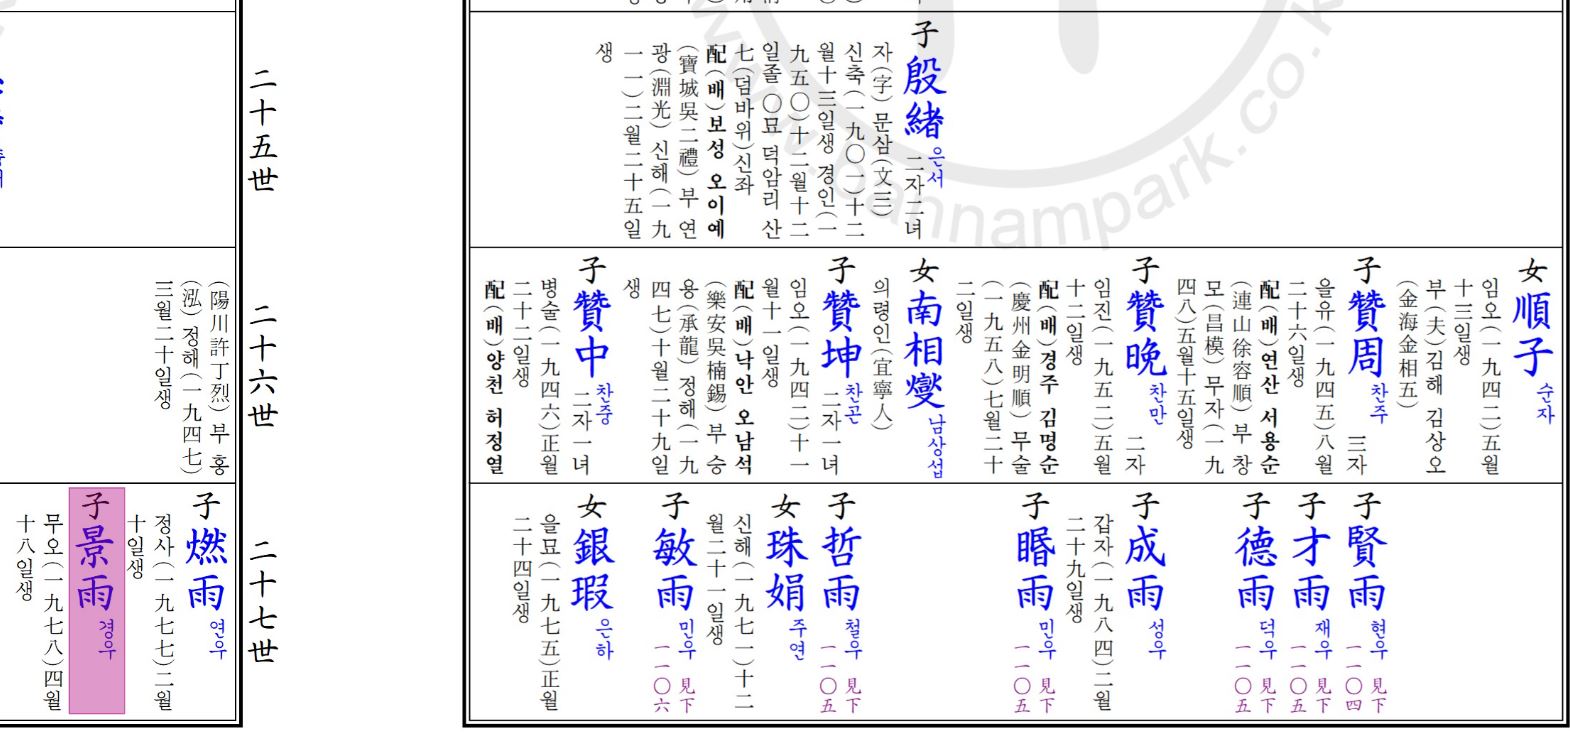 子殷緖 은서 二자二녀
자(字) 문삼(文三)
신축(一九〇一)十二
월十三일생 경인(一
九五〇)十二월十二
일졸 〇묘 덕암리 산
七(덤바위)신좌
配(배)보성 오이예
(寶城吳二禮) 부 연
광(淵光) 신해(一九
一一)二월二十五일
생
二十五世
女順子 순자
임오(一九四二)五월
十三일생
부(夫)김해 김상오
(金海金相五)
子贊周 찬주 三자
을유(一九四五)八월
二十六일생
配(배)연산 서용순
(連山徐容順) 부 창
모(昌模) 무자(一九
四八)五월十五일생
子贊晩 찬만 二자
임진(一九五二)五월
十二일생
配(배)경주 김명순
(慶州金明順) 무술
(一九五八)七월二十
二일생
女南相燮 남상섭
의령인(宜寧人)
子贊坤 찬곤 二자一녀
임오(一九四二)十一
월十一일생
配(배)낙안 오남석
(樂安吳楠錫) 부 승
용(承龍) 정해(一九
四七)十월二十九일
생
子贊中 찬중 二자一녀
병술(一九四六)正월
二十二일생
配(배)양천 허정열
二十六世
(陽川許丁烈) 부 홍
(泓) 정해(一九四七)
三월二十일생
子賢雨 현우 見下 一一〇四
子才雨 재우 見下 一一〇五
子德雨 덕우 見下 一一〇五
子成雨 성우
갑자(一九八四)二월
二十九일생
子暋雨 민우 見下 一一〇五
子哲雨 철우 見下 一一〇五
女珠娟 주연
신해(一九七一)十二
월二十一일생
子敏雨 민우 見下 一一〇六
女銀瑕 은하
을묘(一九七五)正월
二十四일생
二十七世
子燃雨 연우
정사(一九七七)二월
十일생
子景雨 경우
무오(一九七八)四월
十八일생